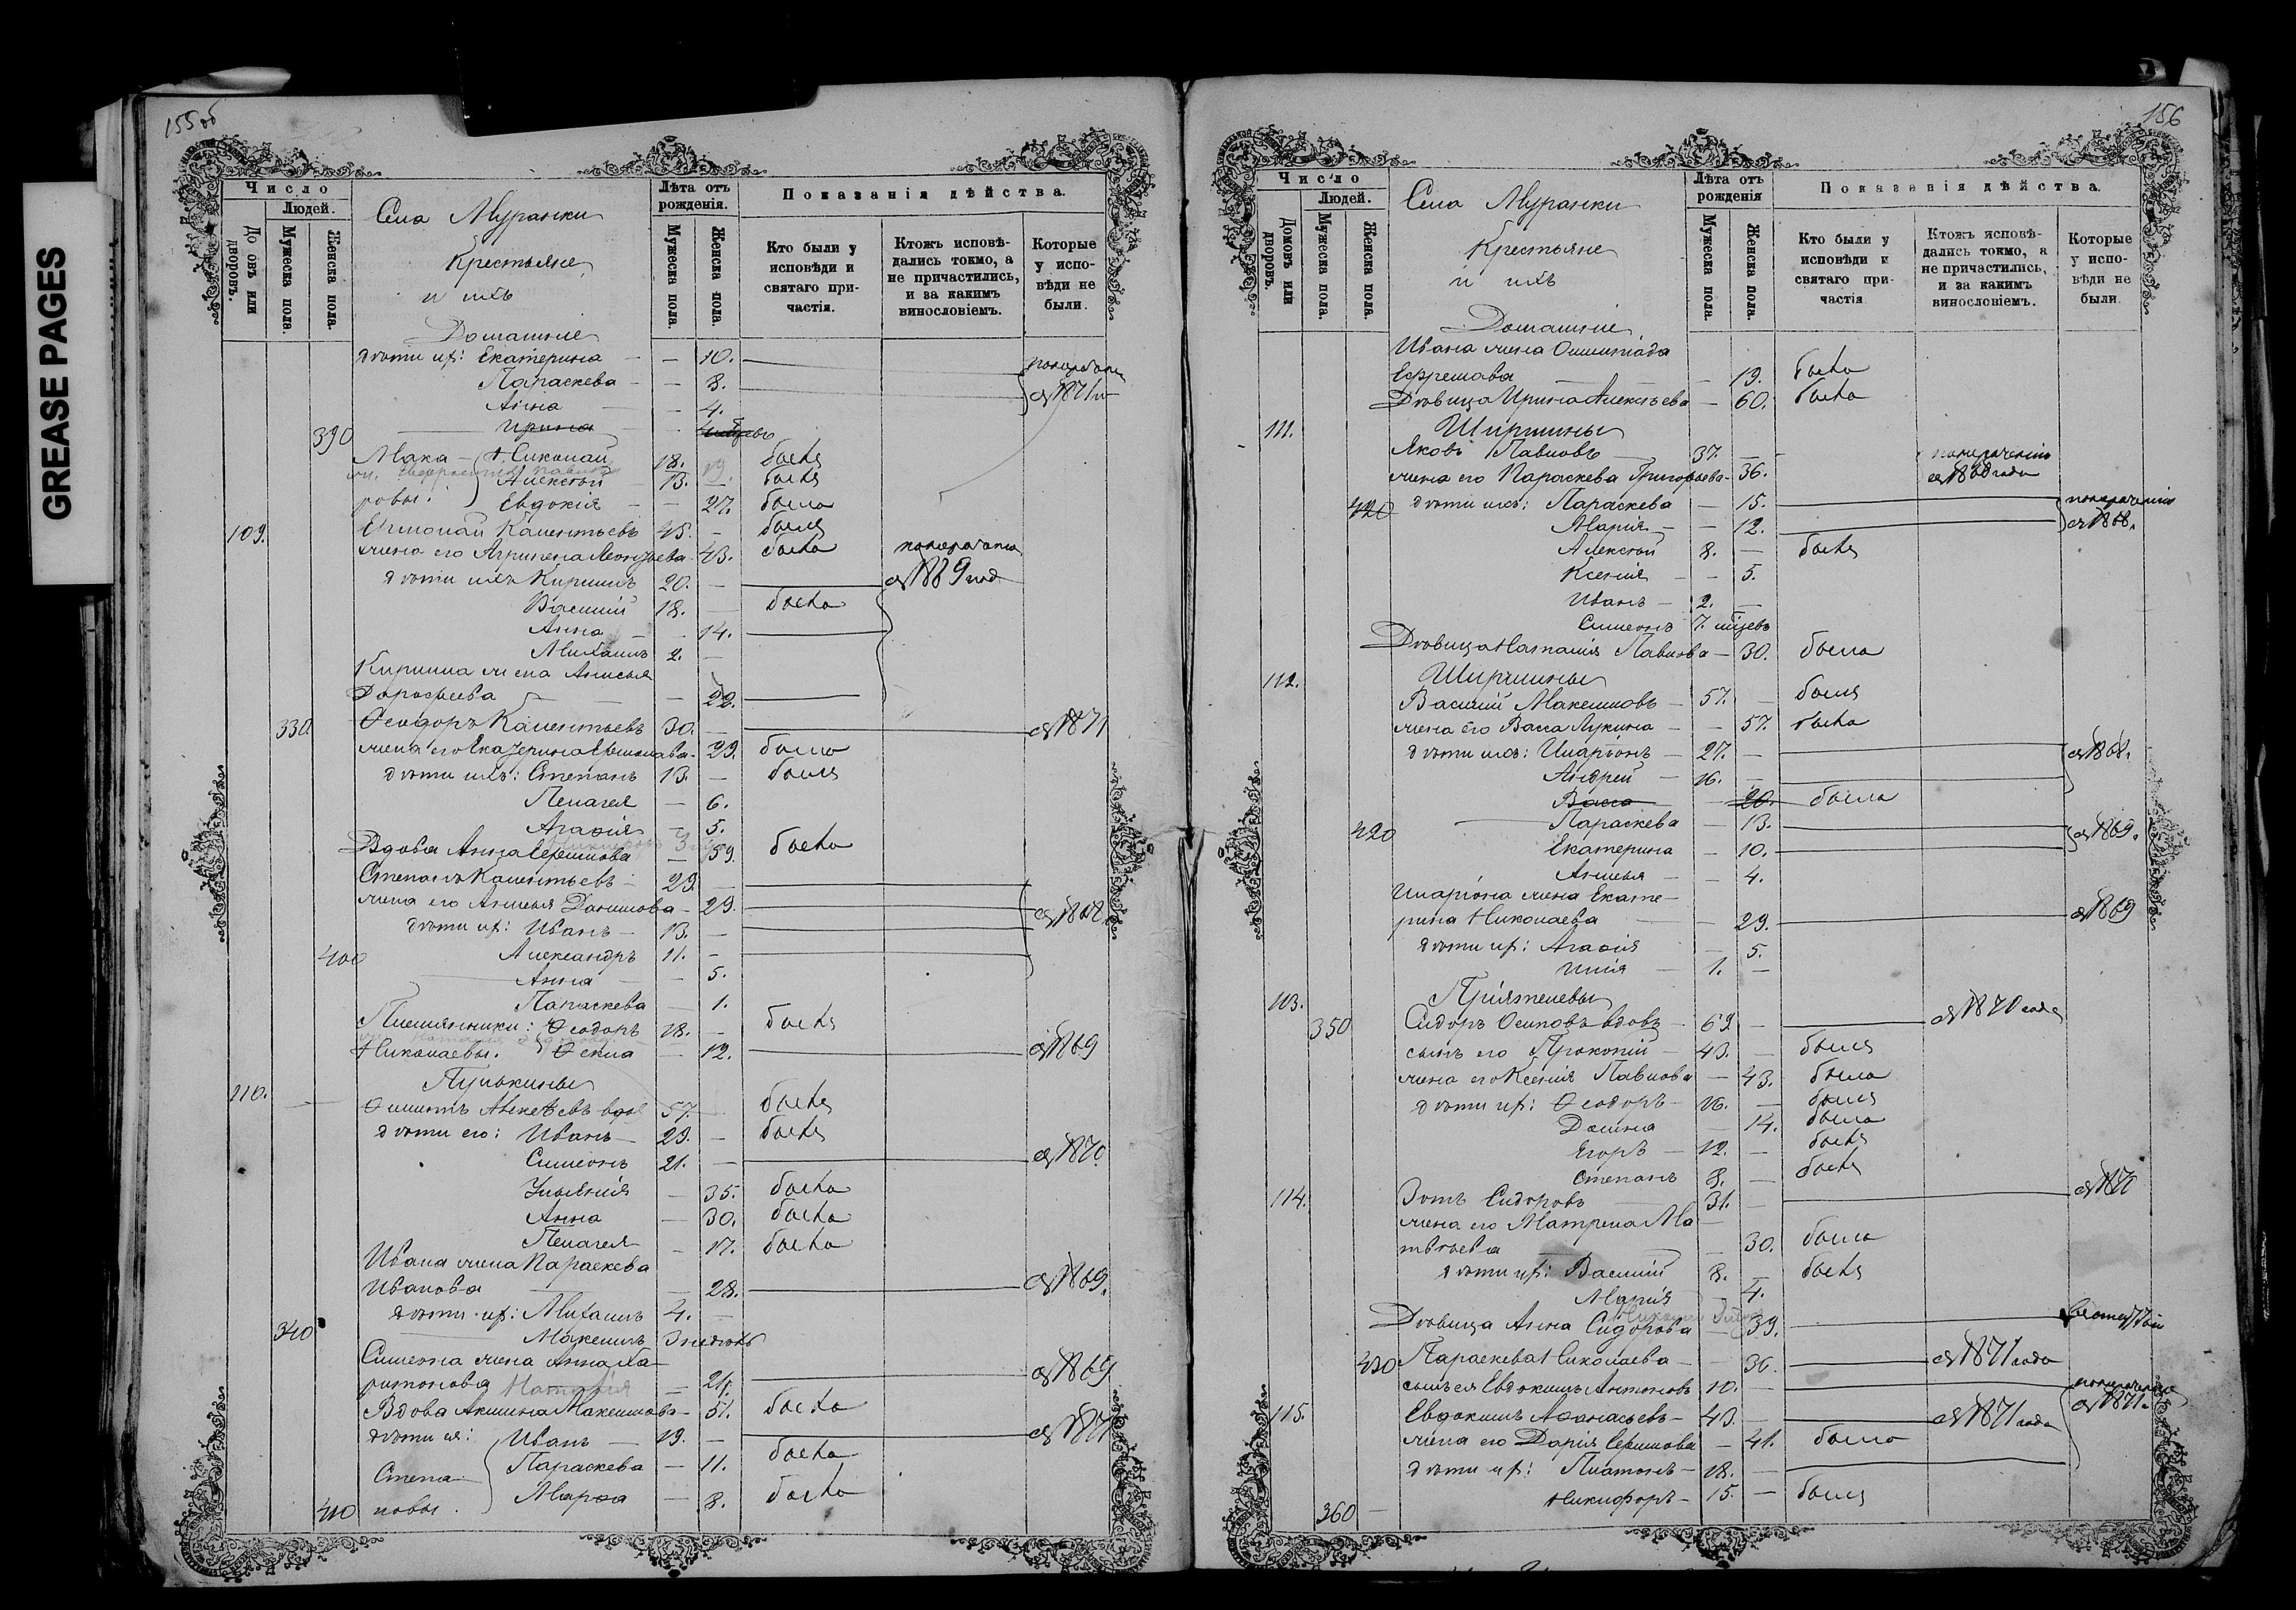 GREASE PAGES
155 об
Число
Людей.
До овъ или дворовъ.
Мужеска пола.
Женска пола.
Села Муранки
Крестьяне
и ихъ
Домашніе
Лѣта отъ рожденія.
Мужеска пола.
Женска пола.
Показанія дѣйства.
Кто были у исповѣди и святаго причастія.
Ктожъ исповѣдались токмо, а не причастились, и за какимъ винословіемъ.
Которые у исповѣди не были.
дѣти их: Екатерина — — 10.
Параскева — — 8.
Анна — — 4. съ 1871
390 Ирина
Мака- Николай 18. былъ
Алексѣй 13. — былъ
ровы: Евдокія — 27. была
109. Ермолай Калентьевъ 45. — былъ
жена его Агрипена Леонтьева 43. была
дѣти ихъ Кириллъ 20. — съ 1869 год
Василій 18. — была
Анна — 14.
Михаилъ 2. —
Кирилла жена Анисья
Дорофеева — 22.
330 Ѳеодоръ Калентьевъ 30. — съ 1871
жена его Екатерина Ермолаева 29. была
дѣти ихъ: Степанъ 13. — былъ
Пелагея — 6.
Агафія — 5.
Вдова Анна Ефимова — 59. была
Степанъ Калентьевъ 29. —
жена его Анисья Данилова — 29. съ 1868
дѣти их: Иванъ 13. —
400 Александръ 11. —
Анна — 5.
Параскева — 1.
Племянники: Ѳеодоръ 18. — былъ
Николаевы. Ѳекла — 12. съ 1869
Пулькины
110. Филиппъ Алексѣевъ вдов 57. былъ
дѣти его: Иванъ 29. — былъ
Симеонъ 21. — съ 1870
Ульянія — 35. была
Анна — 30. была
Пелагея — 17. была
Ивана жена Параскева
Иванова — 28. съ 1869.
дѣти их: Михаилъ 4. —
340 Максимъ 3 недѣль
Симеона жена Анна Ха-
ритонова — 21. съ 1869
Вдова Акилина Максимова 51. была
дѣти ея: Иванъ 19. — съ 1871
Степа- Параскева — 11. была
410 новы. Марфа — 8. была
156
Число
Людей.
Домовъ или дворовъ.
Мужеска пола.
Женска пола.
Села Муранки
Крестьяне
и ихъ
Домашніе
Лѣта отъ рожденія
Мужеска пола.
Женска пола.
Показанія дѣйства.
Кто были у исповѣди и святаго причастія
Ктожъ исповѣдались токмо, а не причастились, и за какимъ винословіемъ.
Которые у исповѣди не были.
Ивана жена Олимпіада
Ефремова — 19. была
Дѣвица Ирина Алексѣева — 60. была
111. Ширшины
Яковъ Павловъ 37. —
жена его Параскева Григорьева 36. съ 1860 года
420 дѣти ихъ: Параскева — 15.
Марія — 12. съ 1868.
Алексѣй 8. — былъ
Ксенія — 5.
Иванъ 2. —
Симеонъ 7. мѣцевъ
Дѣвица Наталія Павлова — 30. была
112. Ширшины
Василій Максимовъ 57. — былъ
жена его Васса Лукина — 57. была
дѣти ихъ: Иларіонъ 27. — съ 1868.
Андрей 16. —
Васса — 20. была
420 Параскева — 13. съ 1869.
Екатерина — 10.
Анисья — 4.
Иларіона жена Екате-
рина Николаева — 29. съ 1869
дѣти их: Агафія — 5.
Илія 1. —
113. Пріятелевы
350 Сидоръ Осиповъ вдовъ 69 — съ 1870 года
сынъ его Прокопій 43. — былъ
жена его Ксенія Павлова — 43. была
дѣти их: Ѳеодоръ 16. — былъ
Домна — 14. была
Егоръ 12. — былъ
Степанъ 8. — былъ
114. Зотъ Сидоровъ 31. — съ 1870
жена его Матрена Ма-
твѣева — 30. была
дѣти их: Василій 8. — былъ
Марія — 4.
Дѣвица Анна Сидорова — 39.
430 Параскева Николаева — 36. съ 1871 года
сынъ ея Евдокимъ Антоновъ 10. —
115. Евдокимъ Аѳанасьевъ 43. — съ 1871 года съ 1871.
жена его Дарія Ефимова — 41. была
дѣти их: Платонъ 18. —
360 Никифоръ 15. — былъ